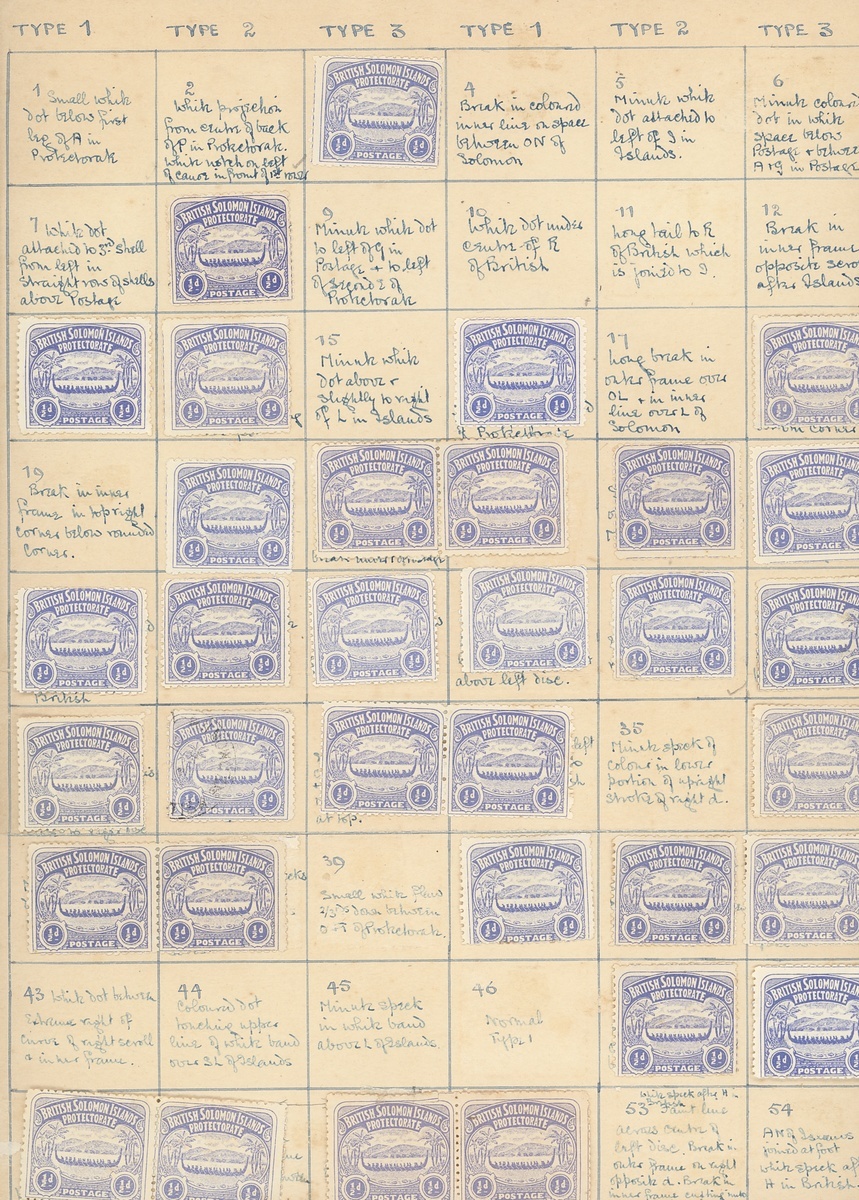 TYPE 1 TYPE 2 TYPE 3 TYPE 1 TYPE 2 TYPE 3
1 Small white
dot below first
leg of A in
Protectorate
2
White projection
from centre of back
of P in Protectorate.
White notch on left
of canoe in front of 1st rower
BRITISH SOLOMON ISLANDS
PROTECTORATE
½d ½d
POSTAGE
4
Break in coloured
inner line on space
between ON of
Solomon
5
Minute white
dot attached to
left of I in
Islands.
6
Minute coloure
dot in white
space below
Postage + between
A+G in Postage
7 White dot
attached to 3rd shell
from left in
straight row of shells
above Postage
BRITISH SOLOMON ISLANDS
PROTECTORATE
½d ½d
POSTAGE
9
Minute white dot
to left of G in
Postage + to left
of second E of
Protectorate
10
White dot under
centre of R
of British
11
Long tail to R
of British which
is joined to I.
12
Break in
inner frame
opposite scro
after Islands
BRITISH SOLOMON ISLANDS
PROTECTORATE
½d ½d
POSTAGE
BRITISH SOLOMON ISLANDS
PROTECTORATE
½d ½d
POSTAGE
15
Minute white
dot above +
slightly to right
of L in Islands
BRITISH SOLOMON ISLANDS
PROTECTORATE
½d ½d
POSTAGE
17
Long break in
outer frame over
OL + in inner
line over L of
Solomon
BRITISH SOLOMON ISL
PROTECTORATE
½d
POSTAGE
corner
19
Break in inner
frame in top right
corner below rounded
corner.
BRITISH SOLOMON ISLANDS
PROTECTORATE
½d ½d
POSTAGE
BRITISH SOLOMON ISLANDS
PROTECTORATE
½d ½d
POSTAGE
BRITISH SOLOMON ISLANDS
PROTECTORATE
½d ½d
POSTAGE
BRITISH SOLOMON ISLANDS
PROTECTORATE
½d ½d
POSTAGE
BRITISH SOLOMON ISL
PROTECTORATE
½d
POSTAGE
BRITISH SOLOMON ISLANDS
PROTECTORATE
½d ½d
POSTAGE
British
BRITISH SOLOMON ISLANDS
PROTECTORATE
½d ½d
POSTAGE
BRITISH SOLOMON ISLANDS
PROTECTORATE
½d ½d
POSTAGE
BRITISH SOLOMON ISLANDS
PROTECTORATE
½d ½d
POSTAGE
above left disc.
BRITISH SOLOMON ISLANDS
PROTECTORATE
½d ½d
POSTAGE
BRITISH SOLOMON ISL
PROTECTORATE
½d
POSTAGE
BRITISH SOLOMON ISLANDS
PROTECTORATE
½d ½d
POSTAGE
BRITISH SOLOMON ISLANDS
PROTECTORATE
½d ½d
POSTAGE
BRITISH SOLOMON ISLANDS
PROTECTORATE
½d ½d
POSTAGE
at top.
BRITISH SOLOMON ISLANDS
PROTECTORATE
½d ½d
POSTAGE
left
35
Minute speck of
colour in lower
portion of upright
stroke of right d.
BRITISH SOLOMON ISL
PROTECTORATE
½d
POSTAGE
BRITISH SOLOMON ISLANDS
PROTECTORATE
½d ½d
POSTAGE
BRITISH SOLOMON ISLANDS
PROTECTORATE
½d ½d
POSTAGE
39
Small white flaw
2/3rds down between
O + T of Protectorate.
BRITISH SOLOMON ISLANDS
PROTECTORATE
½d ½d
POSTAGE
BRITISH SOLOMON ISLANDS
PROTECTORATE
½d ½d
POSTAGE
BRITISH SOLOMON ISL
PROTECTORATE
½d
POSTAGE
43 White dot between
Extreme right of
curve of right scroll
+ inner frame.
44
Coloured dot
touching upper
line of white band
over SL of Islands
45
Minute speck
in white band
above L of Islands.
46
Normal
Type 1
BRITISH SOLOMON ISLANDS
PROTECTORATE
½d ½d
POSTAGE
BRITISH SOLOMON ISL
PROTECTORATE
½d
POSTAGE
BRITISH SOLOMON ISLANDS
PROTECTORATE
½d ½d
POSTAGE
BRITISH SOLOMON ISLANDS
PROTECTORATE
½d ½d
POSTAGE
BRITISH SOLOMON ISLANDS
PROTECTORATE
½d ½d
POSTAGE
BRITISH SOLOMON ISLANDS
PROTECTORATE
½d ½d
POSTAGE
white speck after H in
British
53 Faint line
across centre of
left disc. Break in
outer frame on right
opposite d. Break in
inner frame
54
AN of Islands
joined at foot
white speck af
H in British